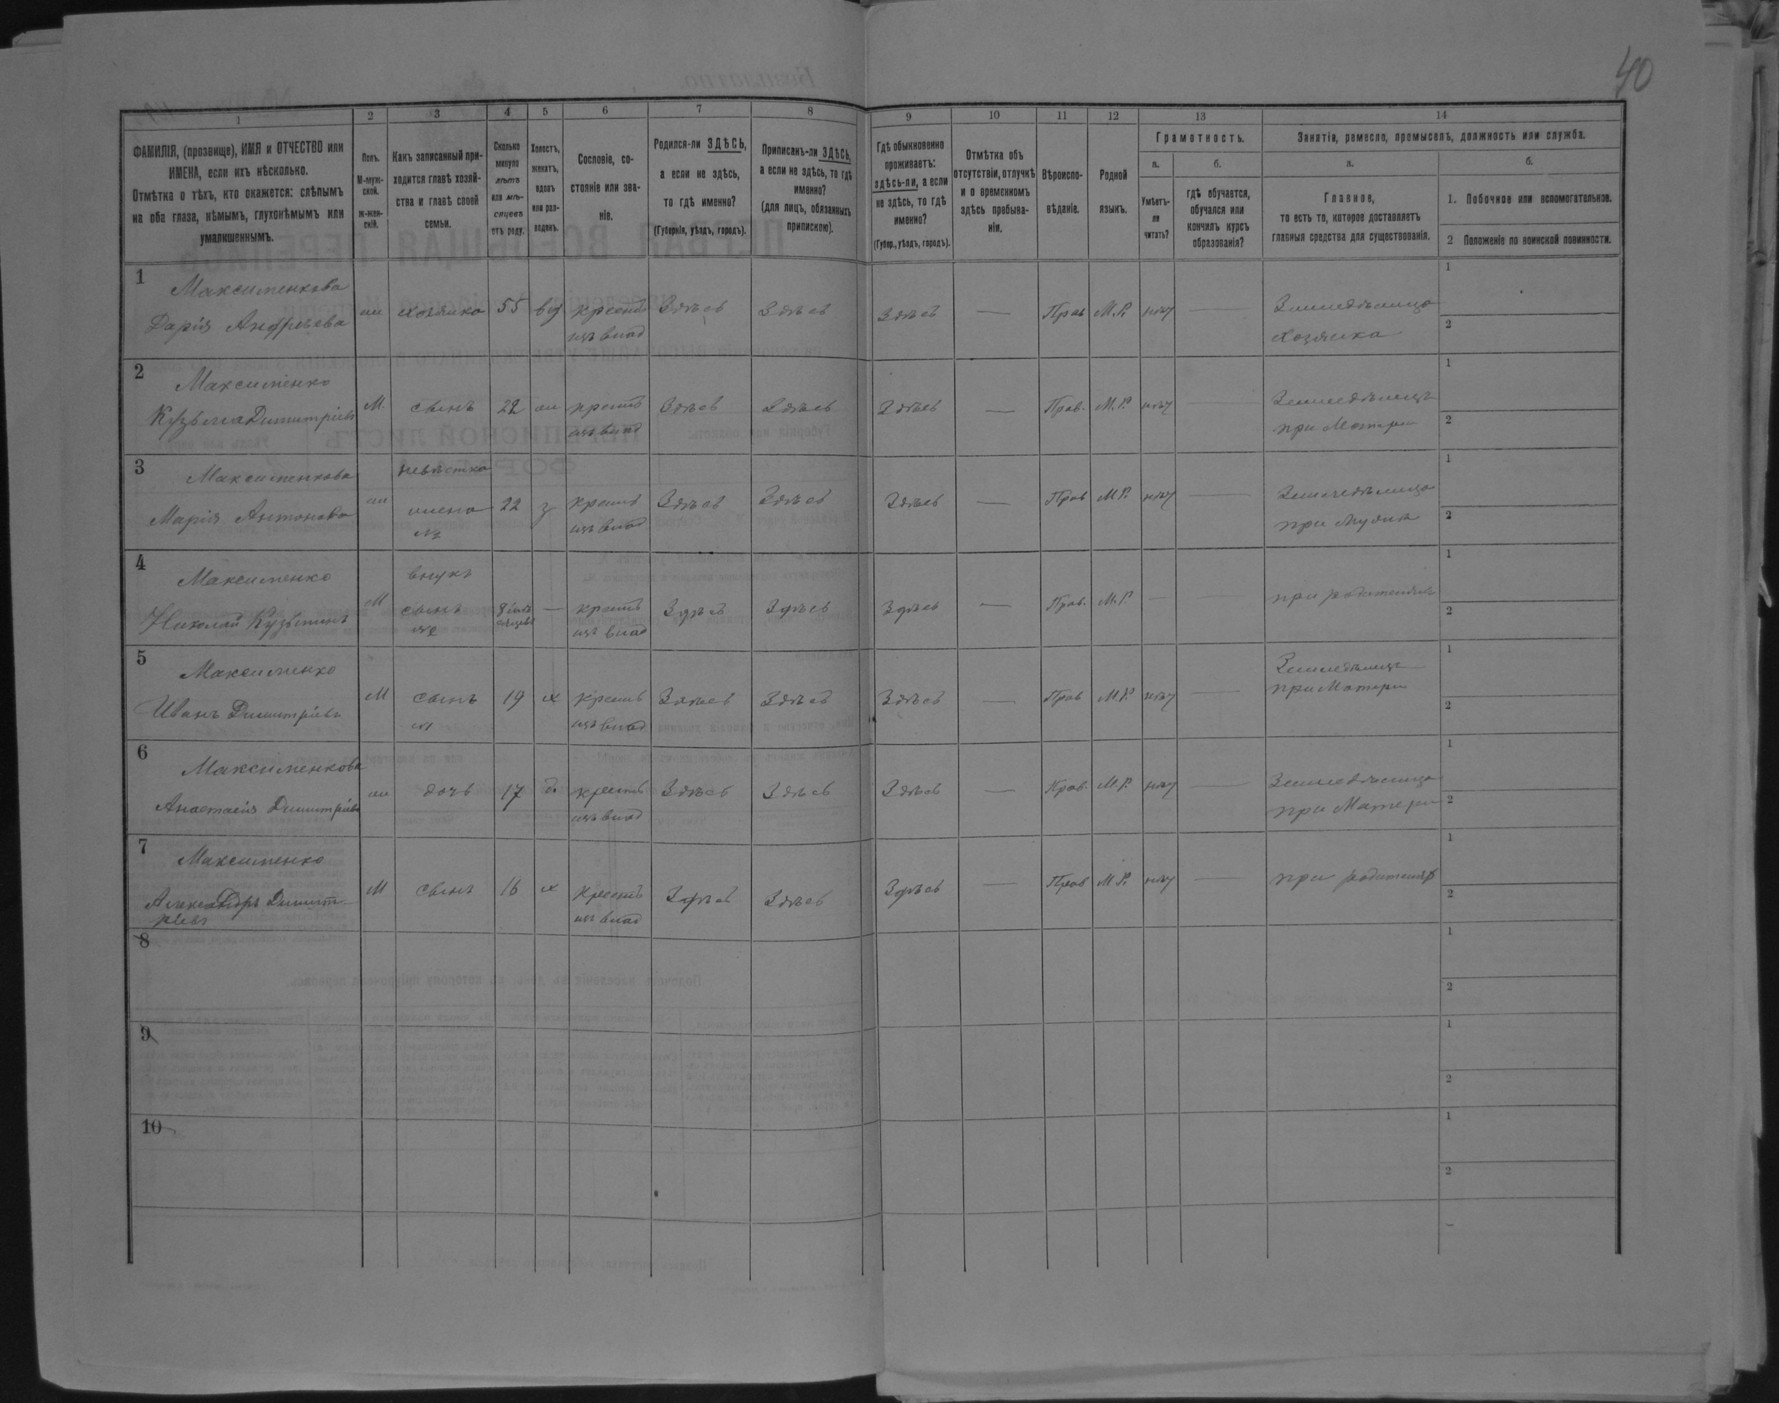 40
1
2
3
4
5
6
7
8
9
10
11
12
13
14
ФАМИЛІЯ, (прозвище), ИМЯ и ОТЧЕСТВО или
ИМЕНА, если ихъ нѣсколько.
Отмѣтка о тѣхъ, кто окажется: слѣпымъ
на оба глаза, нѣмымъ, глухонѣмымъ или
умалишеннымъ.
Полъ.
М-муж-
ской.
ж-жен-
скій.
Какъ записанный при-
ходится главѣ хозяй-
ства и главѣ своей
семьи.
Сколько
минуло
лѣтъ
или мѣ-
сяцевъ
отъ роду.
Холостъ,
женатъ,
вдовъ
или раз-
веденъ.
Сословіе, со-
стояніе или зва-
ніе.
Родился-ли ЗДѢСЬ,
а если не здѣсь,
то гдѣ именно?
(Губернія, уѣздъ, городъ).
Приписанъ-ли ЗДѢСЬ,
а если не здѣсь, то гдѣ
именно?
(для лицъ, обязанныхъ
припискою).
Гдѣ обыкновенно
проживаетъ:
здѣсь-ли, а если
не здѣсь, то гдѣ
именно?
(Губер., уѣздъ, городъ).
Отмѣтка объ
отсутствіи, отлучкѣ
и о временномъ
здѣсь пребыва-
ніи.
Вѣроиспо-
вѣданіе.
Родной
языкъ.
Грамотность.
а.
Умѣетъ-
ли
читать?
б.
гдѣ обучается,
обучался или
кончилъ курсъ
образованія?
Занятія, ремесло, промыселъ, должность или служба.
а.
Главное,
то есть то, которое доставляетъ
главныя средства для существованія.
б.
1. Побочное или вспомогательное.
2 Положеніе по воинской повинности.
1 Максименкова
Дарія Андреева
ж хозяйка 55 вд крестъ Здѣсь Здѣсь Здѣсь — Прав М.Р. нѣтъ — Земледѣлица
изъ влад Хозяйка
1
2
2 Максименко
Кузьма Димитріевъ
М. сынъ 22 ж крестъ Здѣсь Здѣсь Здѣсь — Прав. М.Р. нѣтъ — Земледѣлецъ
изъ влад при Матери
1
2
3 Максименкова невѣстка
Марія Антонова
ж жена 22 з крест Здѣсь Здѣсь Здѣсь — Прав М.Р. нѣтъ — Земледѣлица
№2 изъ влад при Мужѣ
1
2
4 Максименко внукъ
Николай Кузьминъ
М сынъ 8 — крестъ Здѣсь Здѣсь Здѣсь — Прав. М.Р. — — при родителяхъ
№2 изъ влад
1
2
5 Максименко
Иванъ Димитріевъ
М сынъ 19 х крестъ Здѣсь Здѣсь Здѣсь — Прав М.Р. нѣтъ — Земледѣлецъ
изъ влад при Матери
1
2
6 Максименкова
Анастасія Димитріева
ж дочь 17 д. крестъ Здѣсь Здѣсь Здѣсь — Прав. М.Р. нѣтъ — Земледѣлица
изъ влад при Матери
1
2
7 Максименко
Александръ Димит-
ріевъ
М сынъ 16 х крестъ Здѣсь Здѣсь Здѣсь — Прав М.Р. нѣтъ — при родителѣ
изъ влад
1
2
8
1
2
9
1
2
10
1
2